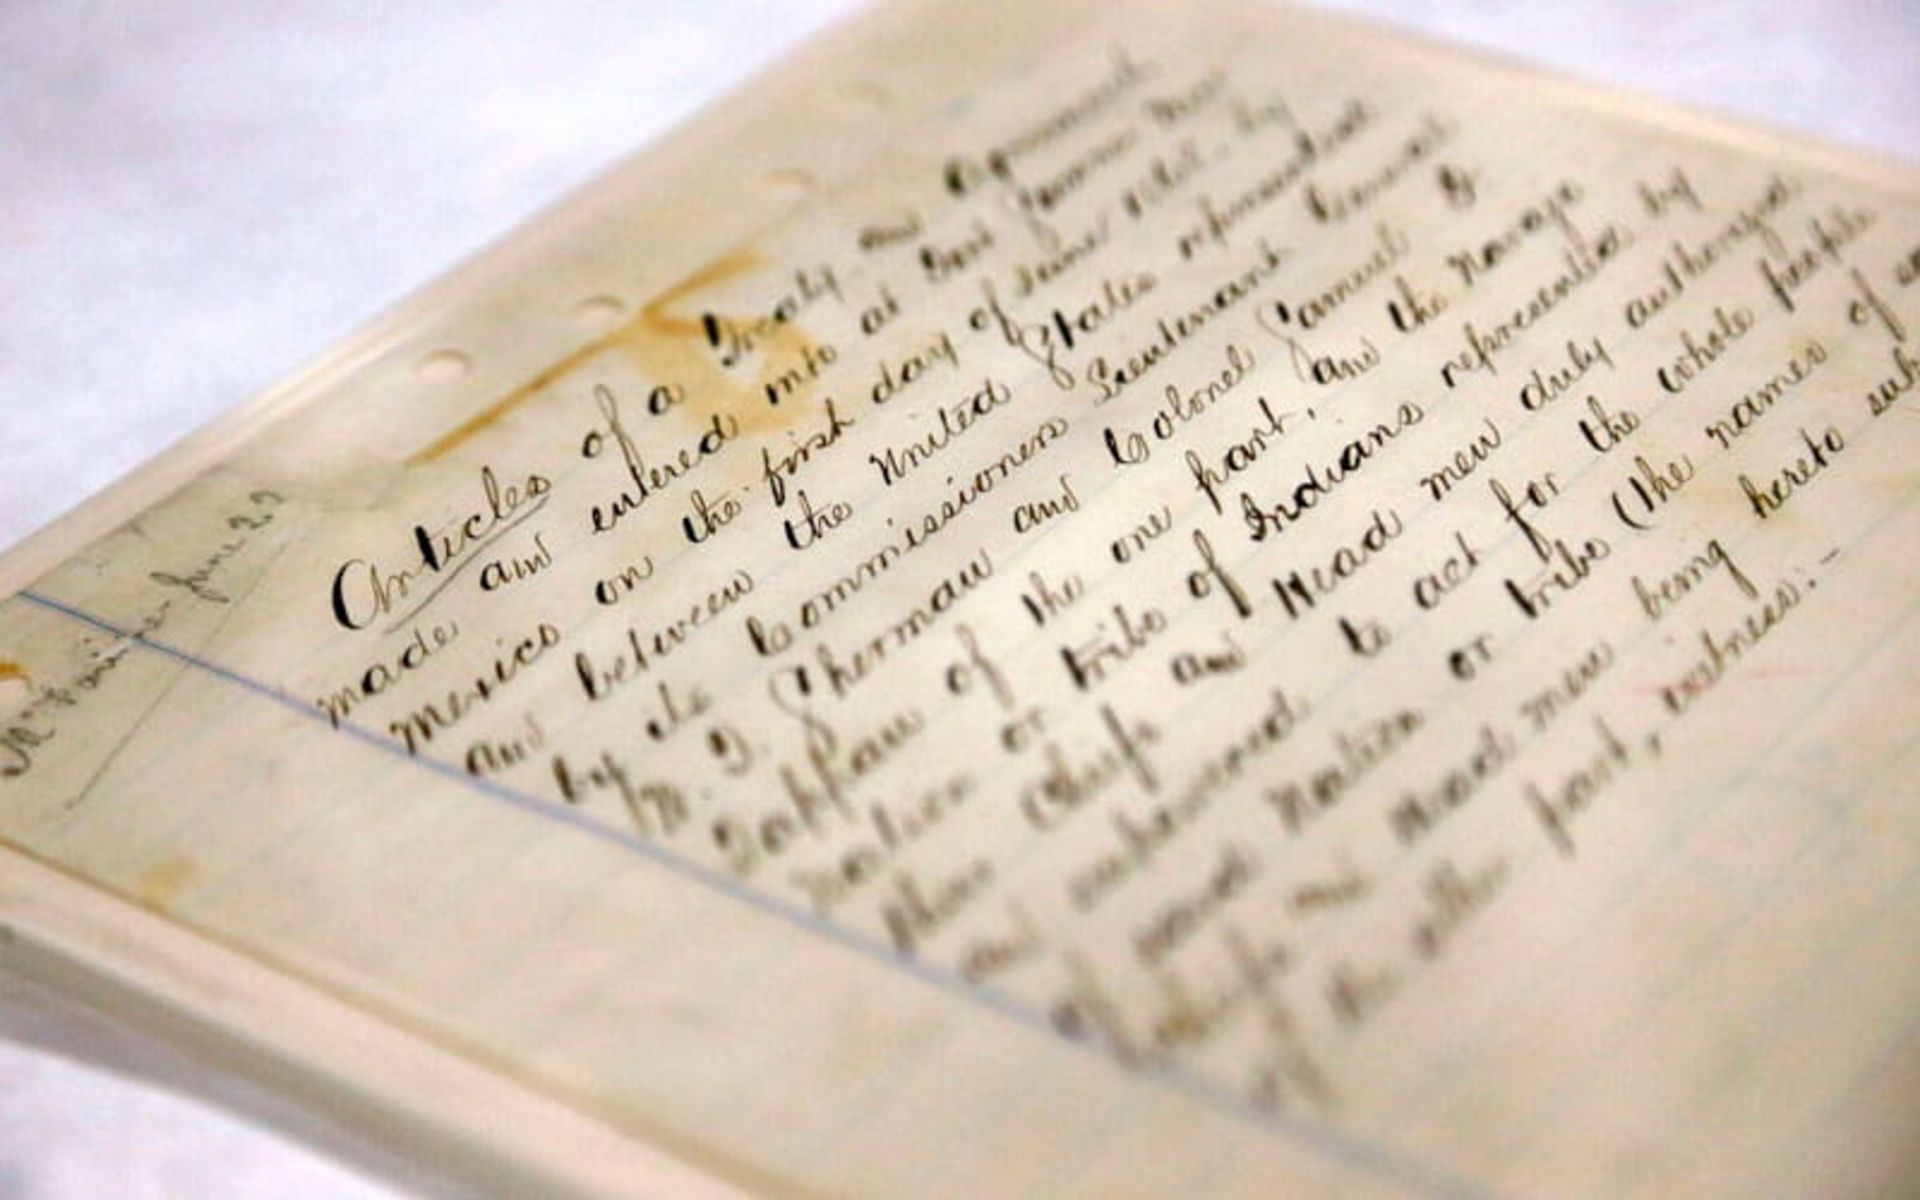 Articles of a Treaty and Agreement
made and entered into at Fort Sumner New
Mexico on the first day of June 1868 by
and between the United States represented
by its Commissioners Lieutenant General
W. T. Sherman and Colonel Samuel F.
Tappan of the one part, and the Navajo
Nation or tribe of Indians represented by
their Chiefs and Head men duly authorized
and empowered to act for the whole people
of said Nation or tribe (the names of
Chiefs and Head men being hereto
of the other part, witness:-
June 27